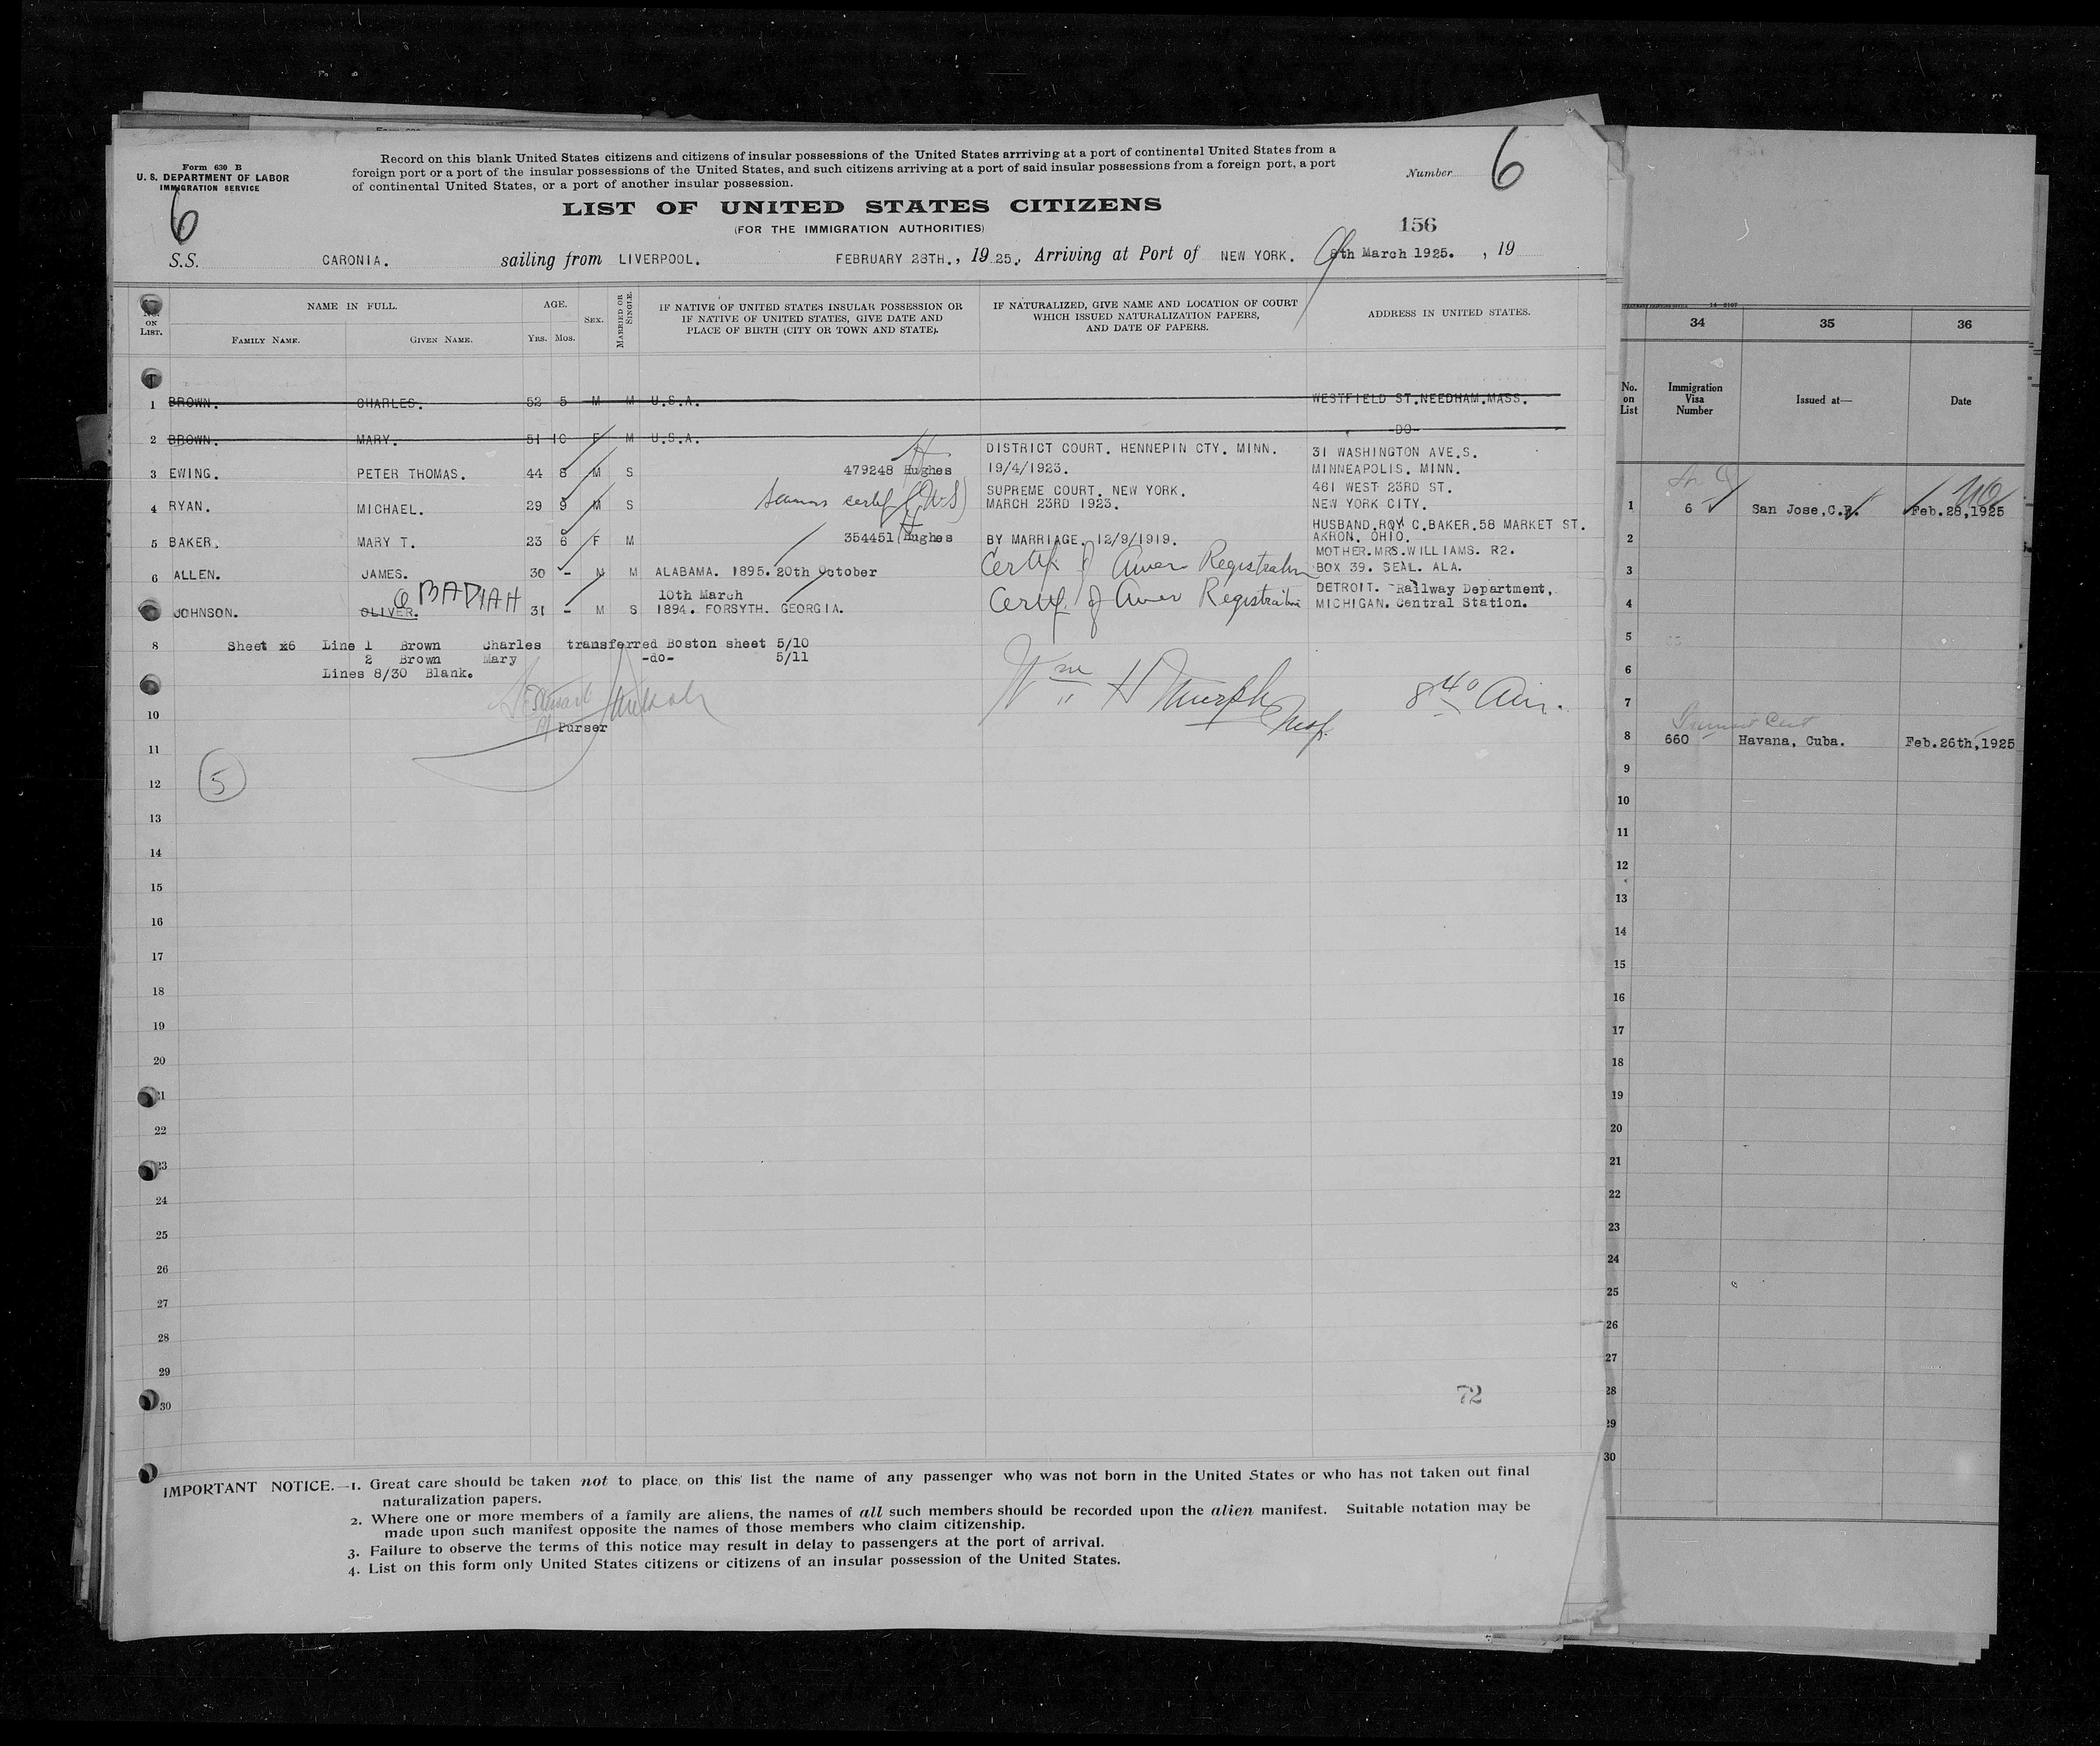 Form 630 B
U. S. DEPARTMENT OF LABOR
IMMIGRATION SERVICE
6
Record on this blank United States citizens and citizens of insular possessions of the United States arrriving at a port of continental United States from a
foreign port or a port of the insular possessions of the United States, and such citizens arriving at a port of said insular possessions from a foreign port, a port
of continental United States, or a port of another insular possession.
Number 6
LIST OF UNITED STATES CITIZENS
(FOR THE IMMIGRATION AUTHORITIES)
156
S.S. CARONIA. sailing from LIVERPOOL. FEBRUARY 28TH., 1925., Arriving at Port of NEW YORK. 9th March 1925. , 19
No. ON LIST. NAME IN FULL. AGE. SEX. MARRIED OR SINGLE. IF NATIVE OF UNITED STATES INSULAR POSSESSION OR IF NATIVE OF UNITED STATES, GIVE DATE AND PLACE OF BIRTH (CITY OR TOWN AND STATE). IF NATURALIZED, GIVE NAME AND LOCATION OF COURT WHICH ISSUED NATURALIZATION PAPERS, AND DATE OF PAPERS. ADDRESS IN UNITED STATES.
FAMILY NAME. GIVEN NAME. YRS. MOS.
1 BROWN. CHARLES. 52 5 M M U.S.A. WESTFIELD ST.NEEDHAM.MASS.
2 BROWN. MARY. 51 10 F M U.S.A. -DO-
DISTRICT COURT. HENNEPIN CTY. MINN. 31 WASHINGTON AVE.S.
3 EWING. PETER THOMAS. 44 8 M S 479248 Hughes 19/4/1923. MINNEAPOLIS. MINN.
SUPREME COURT. NEW YORK. 461 WEST 23RD ST.
4 RYAN. MICHAEL. 29 9 M S Seamans certif MARCH 23RD 1923. NEW YORK CITY.
HUSBAND.ROY C.BAKER.58 MARKET ST.
5 BAKER. MARY T. 23 6 F M 354451 Hughes BY MARRIAGE. 12/9/1919. AKRON. OHIO.
MOTHER.MRS.WILLIAMS. R2.
6 ALLEN. JAMES. 30 - M M ALABAMA. 1895. 20th October Certif of Amer Registration BOX 39. SEAL. ALA.
OBADIAH 10th March DETROIT. Railway Department,
JOHNSON. OLIVER. 31 - M S 1894. FORSYTH. GEORGIA. Certif of Amer Registration MICHIGAN. Central Station.
8 Sheet x6 Line 1 Brown Charles transferred Boston sheet 5/10
2 Brown Mary -do- 5/11
Lines 8/30 Blank.
Wm H Murphy Insp. 8 40 Am.
10 Purser
11
5
12
13
14
15
16
17
18
19
20
21
22
23
24
25
26
27
28
29
30
72
IMPORTANT NOTICE.—1. Great care should be taken not to place on this list the name of any passenger who was not born in the United States or who has not taken out final
naturalization papers.
2. Where one or more members of a family are aliens, the names of all such members should be recorded upon the alien manifest. Suitable notation may be
made upon such manifest opposite the names of those members who claim citizenship.
3. Failure to observe the terms of this notice may result in delay to passengers at the port of arrival.
4. List on this form only United States citizens or citizens of an insular possession of the United States.
34 35 36
No. on List Immigration Visa Number Issued at— Date
1 6 San Jose,C.R. Feb.28,1925
2
3
4
5
6
7
8 660 Havana, Cuba. Feb.26th,1925
9
10
11
12
13
14
15
16
17
18
19
20
21
22
23
24
25
26
27
28
29
30